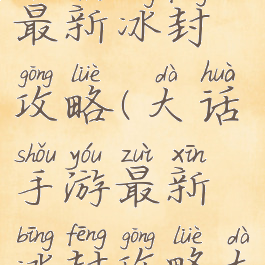 最新冰封
gōng lüè dà huà
攻略(大话
shǒu yóu zuì xīn
手游最新
bīng fēng gōng lüè dà
冰封攻略大